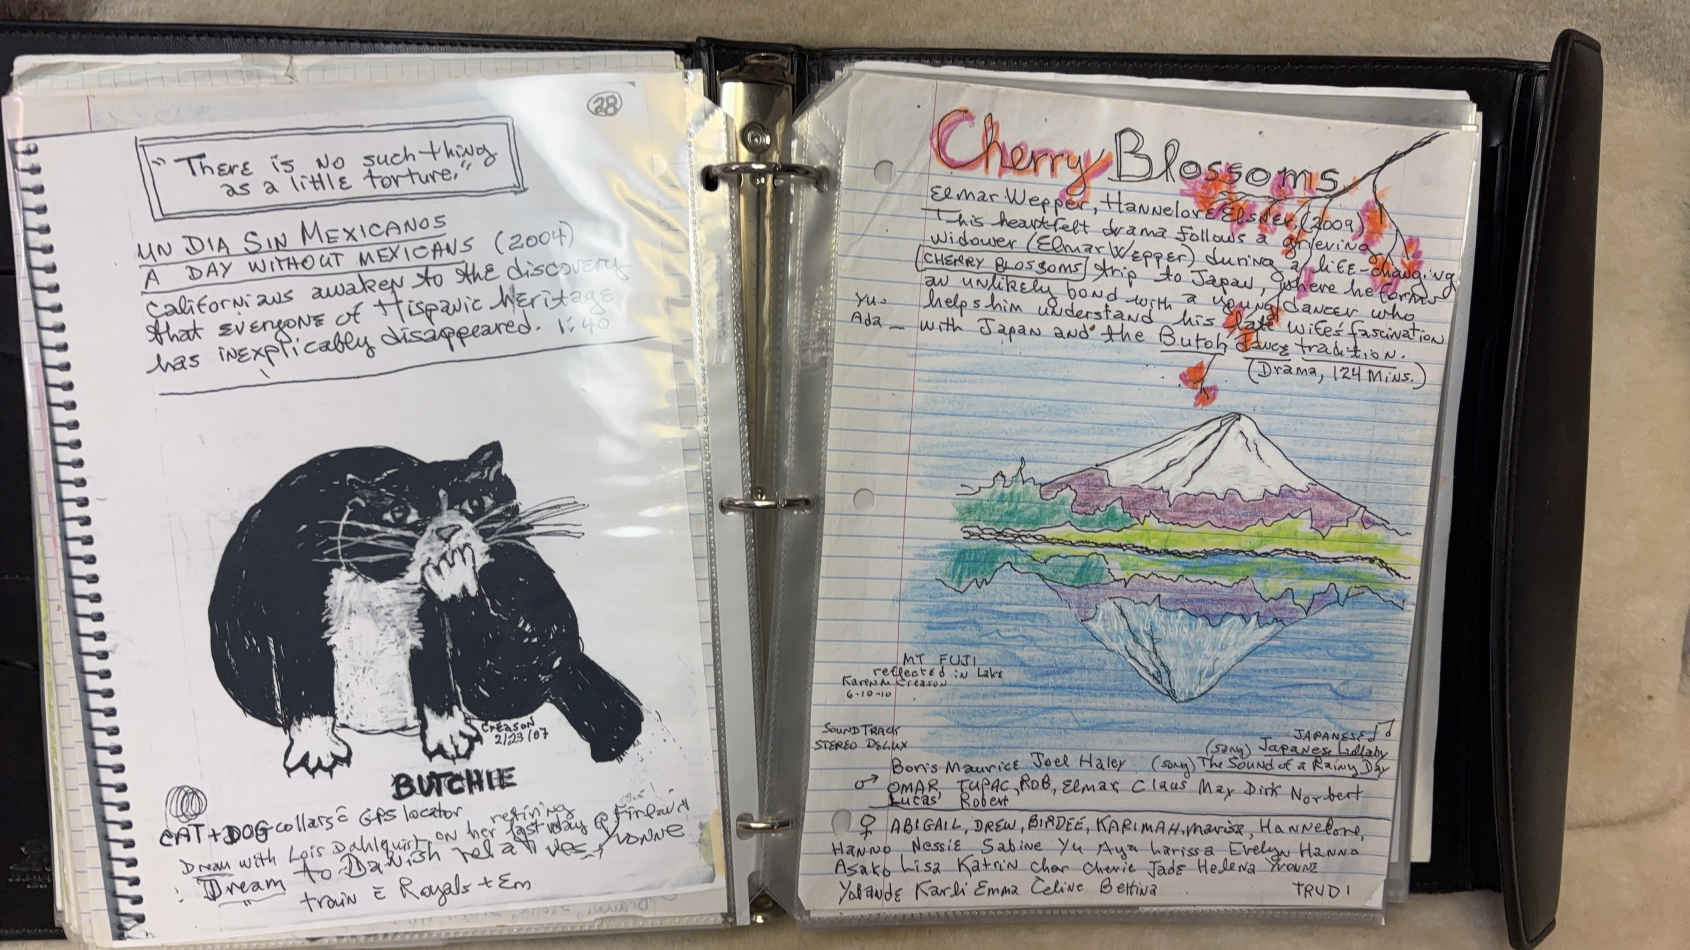 28
"There is no such thing
as a little torture."
UN DIA SIN MEXICANOS
A DAY WITHOUT MEXICANS (2004)
Californians awaken to the discovery
that everyone of Hispanic heritage
has inexplicably disappeared. 1:40
Creason
2/23/07
BUTCHIE
CAT + DOG collars c̄ GPS locator
Dream with Lois Dahlquist on her last way @ Finlavi
retiring
: Dream to Danish relatives → Yvonne
train c̄ Royals + Em
Cherry Blossoms
Elmar Wepper, Hannelore Elsner, (2009)
This heartfelt drama follows a grieving
widower (Elmar Wepper) during a life-changing
CHERRY BLOSSOMS trip to Japan, where he forms
an unlikely bond with a young dancer who
Yu- helps him understand his late wife's fascination
Ada - with Japan and the Butoh dance tradition.
(Drama, 124 Mins.)
MT FUJI
reflected in Lake
Karen M Creason
6-10-10
SOUNDTRACK
STEREO DELUX
JAPANESE ♫
(song) Japanese Lullaby
Boris Maurice Joel Haley (song) The Sound of a Rainy Day
♂ OMAR, TUPAC, ROB, Elmar, Claus Max Dirk Norbert
Lucas Robert
♀ ABIGAIL, DREW, BIRDEE, KARIMAH, Marisa, Hannelore,
Hanno Nessie Sabine Yu Aya Larissa Evelyn Hanna
Asako Lisa Katrin Char Cherie Jade Helena Yvonne
Yolande Karli Emma Celine Bettina TRUDI